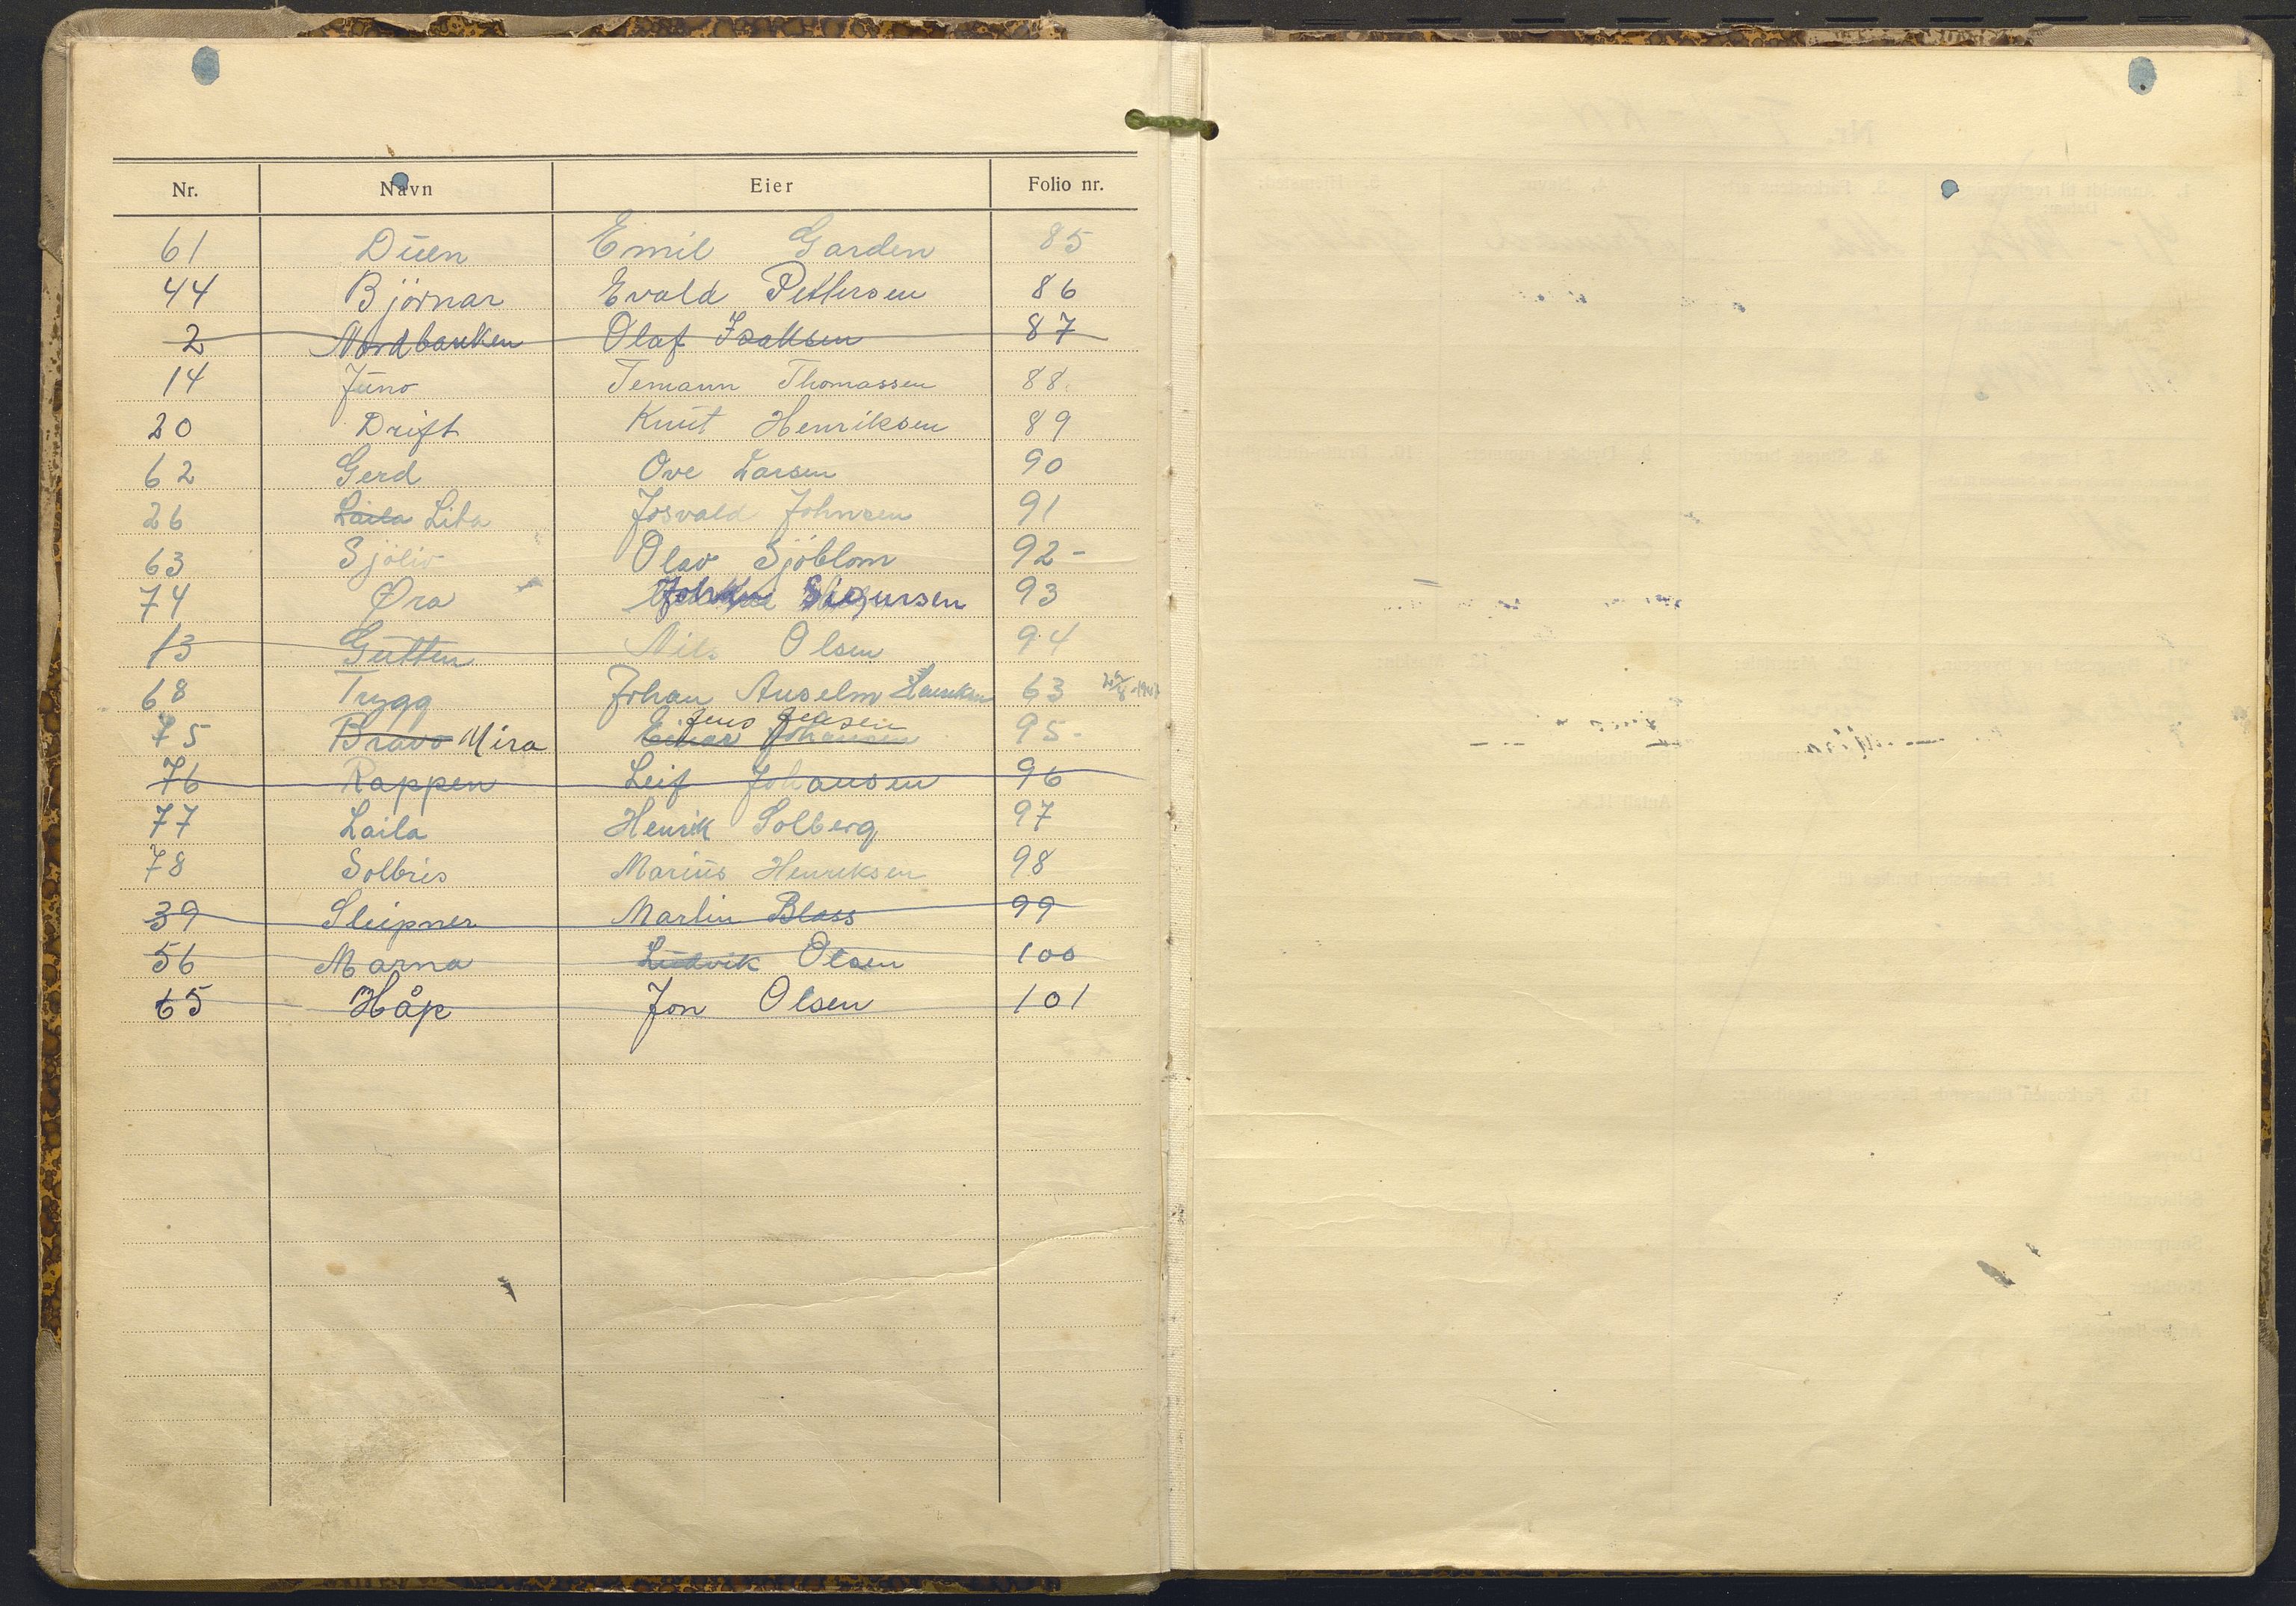 Nr. Navn Eier Folio nr.
61 Duen Emil Garden 85
44 Björnar Evald Pettersen 86
2 Nordbanken Olaf Isaksen 87
14 Juno Temann Thomassen 88
20 Drift Knut Henriksen 89
62 Gerd Ove Larsen 90
26 Laila Lita Josvald Johnsen 91
63 Sjöliv Olav Sjöblom 92-
74 Øra Sigursen 93
13 Gutten Nils Olsen 94
68 Trygg Johan Anselm 63
Jens Jensen
75 Bravo Mira Einar Johansen 95-
76 Rappen Leif Johansen 96
77 Laila Henrik Solberg 97
78 Solbris Marius Henriksen 98
39 Sleipner Martin Blass 99
56 Marna Ludvik Olsen 100
65 Håp Jon Olsen 101